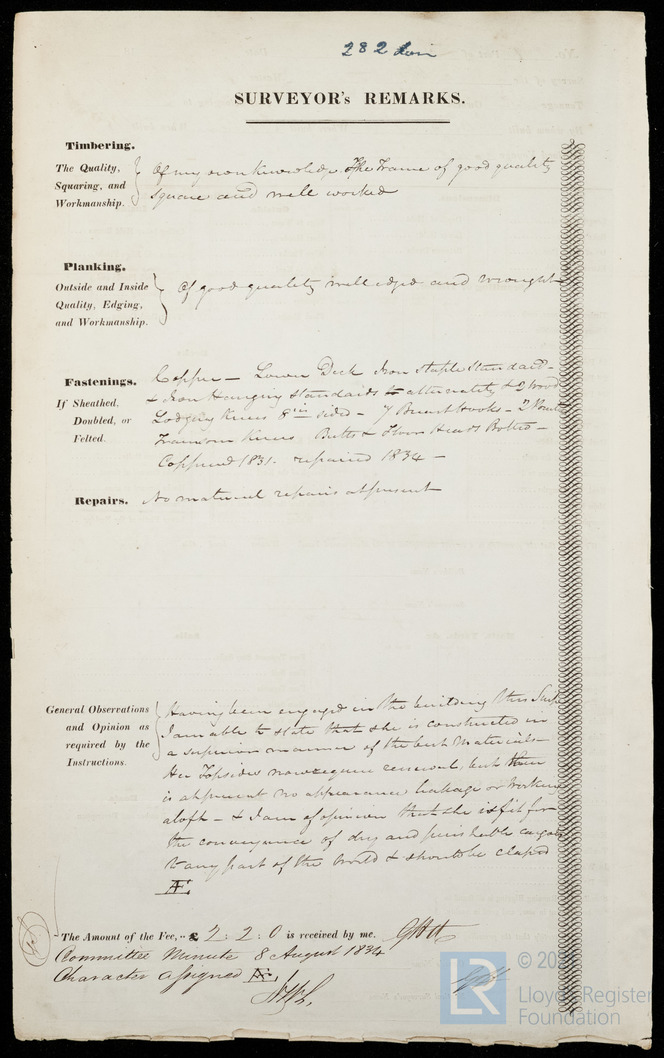 282 Lon
SURVEYOR's REMARKS.
Timbering.
The Quality, Squaring, and Workmanship.
Of my own Knowledge The Frame of good quality
square and well worked
Planking.
Outside and Inside Quality, Edging, and Workmanship.
Of good quality well edged and wrought
Fastenings.
If Sheathed, Doubled, or Felted.
Copper – Lower Deck Iron Staple Standard –
& Iron Hanging Standards alternately & 2 Wood
Lodging Knees 8 in sided – 7 Breasthooks –
Transom Knees Butts & Floor Heads Bolted –
Coppered 1831. repaired 1834 –
Repairs.
No material repairs at present
General Observations and Opinion as required by the Instructions.
Having been engaged in the building this Ship
I am able to state that she is constructed in
a superior manner of the best Materials –
Her Topsides now require renewal, but there
is at present no appearance leakage or working
aloft – & I am of opinion that she is fit for
the conveyance of dry and perishable cargoes
to any part of the World & should be classed
Æ
The Amount of the Fee, .. £ 2 : 2 : 0 is received by me.
Committee Minute 8 August 1834
Character assigned Æ
LR
© 20
Lloyd's Register
Foundation